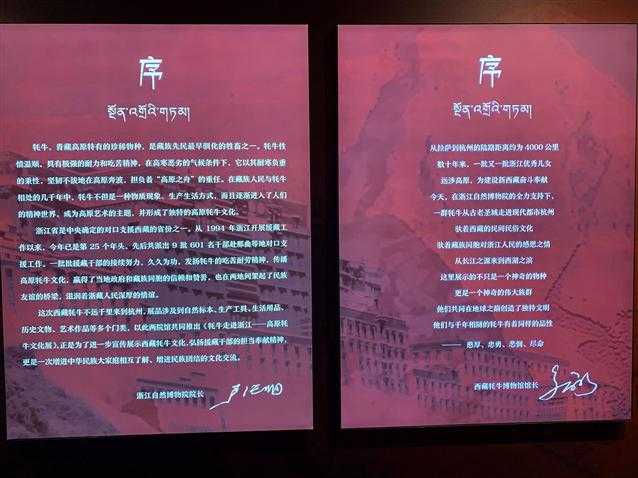 序
སྔོན་འགྲོའི་གཏམ།
牦牛，青藏高原特有的珍稀物种，是藏族先民最早驯化的牲畜之一。牦牛性
情温顺，具有极强的耐力和吃苦精神，在高寒恶劣的气候条件下，它以其耐寒负重
的秉性，坚韧不拔地在高原奔波，担负着“高原之舟”的重任。在藏族人民与牦牛
相处的几千年中，牦牛不但是一种物质现象、生产生活方式，而且逐渐进入了人们
的精神世界，成为高原艺术的主题，并形成了独特的高原牦牛文化。
浙江省是中央确定的对口支援西藏的省份之一。从 1994 年浙江开展援藏
工作以来，今年已是第 25 个年头，先后共派出 9 批 601 名干部赴那曲等地对口支
援工作。一批批援藏干部的接续努力、久久为功，发扬牦牛的吃苦耐劳精神，传播
高原牦牛文化，赢得了当地政府和藏族同胞的信赖和赞誉，也在两地间架起了民族
友谊的桥梁，滋润着浙藏人民深厚的情谊。
这次西藏牦牛不远千里来到杭州，展品涉及到自然标本、生产工具、生活用品、
历史文物、艺术作品等多个门类。以此两院馆共同推出《牦牛走进浙江——高原牦
牛文化展》，正是为了进一步宣传展示西藏牦牛文化，弘扬援藏干部的担当奉献精神，
更是一次增进中华民族大家庭相互了解、增进民族团结的文化交流。
浙江自然博物院院长
序
སྔོན་འགྲོའི་གཏམ།
从拉萨到杭州的陆路距离约为 4000 公里
数十年来，一批又一批浙江优秀儿女
远涉高原，为建设新西藏奋斗奉献
今天，在浙江自然博物院的全力支持下，
一群牦牛从古老圣城走进现代都市杭州
驮着西藏的民间民俗文化
驮着藏族同胞对浙江人民的感恩之情
从长江之源来到西湖之滨
这里展示的不只是一个神奇的物种
更是一个神奇的伟大族群
他们共同在地球之巅创造了独特文明
他们与千年相随的牦牛有着同样的品性
—— 憨厚、忠勇、悲悯、尽命
西藏牦牛博物馆馆长